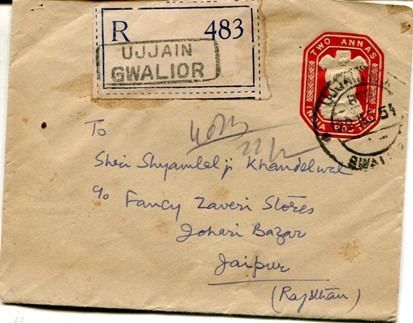 R 483
UJJAIN
GWALIOR
TWO ANNAS
INDIA POSTAGE
To
Shri Shyamlalji Khandelwal
c/o Fancy Zaveri Stores
Johari Bazar
Jaipur
(Rajsthan)